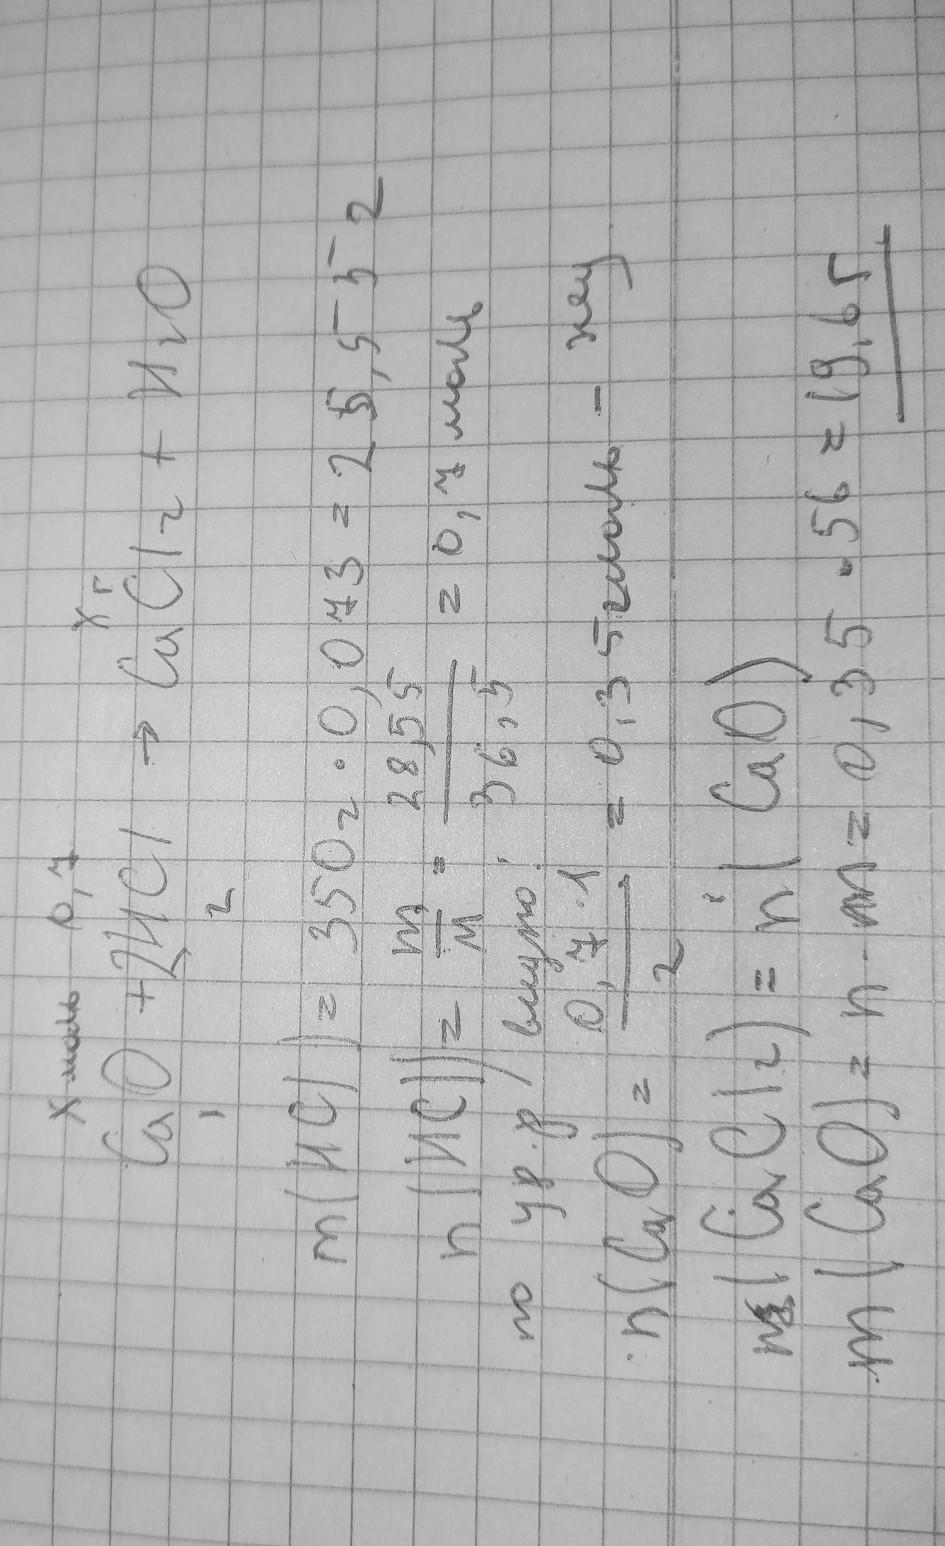 x моль 0,7 x г
CaO + 2HCl → CaCl2 + H2O
1 2
m(HCl) = 350г · 0,073 = 25,55 г
n(HCl) = m/M = 28,55/36,5 = 0,7 моль
по ур-ю
n(CaO) = 0,7·1/2 = 0,35 моль -
n(CaCl2) = n(CaO)
m(CaO) = n · m = 0,35 · 56 = 19,6г